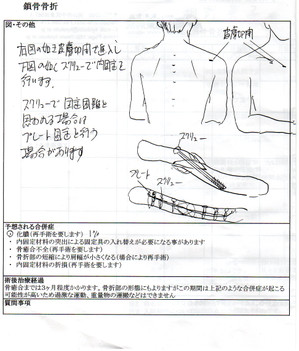 鎖骨骨折
図・その他
右図の如き皮膚切開で進入し
下図の如くスクリューで内固定を
行います.
スクリューで固定困難と
思われる場合は
プレート固定を行う
場合があります
皮膚切開
スクリュー
プレート
スクリュー
予想される合併症
・化膿(再手術を要します) 1%
・内固定材料の突出による固定具の入れ替えが必要になる事があります
・骨癒合不全(再手術を要します)
・骨折部の短縮により肩幅が小さくなる(場合により再手術)
・内固定材料の折損(再手術を要します)
術後治療経過
骨癒合までは3ヶ月程度かかります。骨折部の形態にもよりますがこの期間は上記のような合併症が起こる
可能性が高いため過激な運動、重量物の運搬などはできません
質問事項